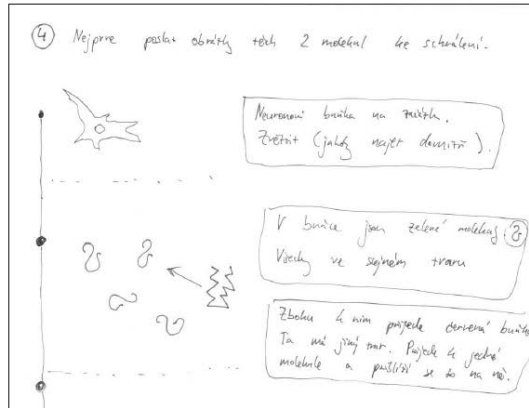 4 Nejprve poslat obrázky těch 2 molekul ke schválení.
Neuronová buňka na začátku.
Zvětšit (jakoby najet dovnitř).
V buňce jsou zelené molekuly
Všechny ve stejném tvaru
Zboku k nim přijede červená buňka
Ta má jiný tvar. Přijede k jedné
molekule a přilíší se to na ni.